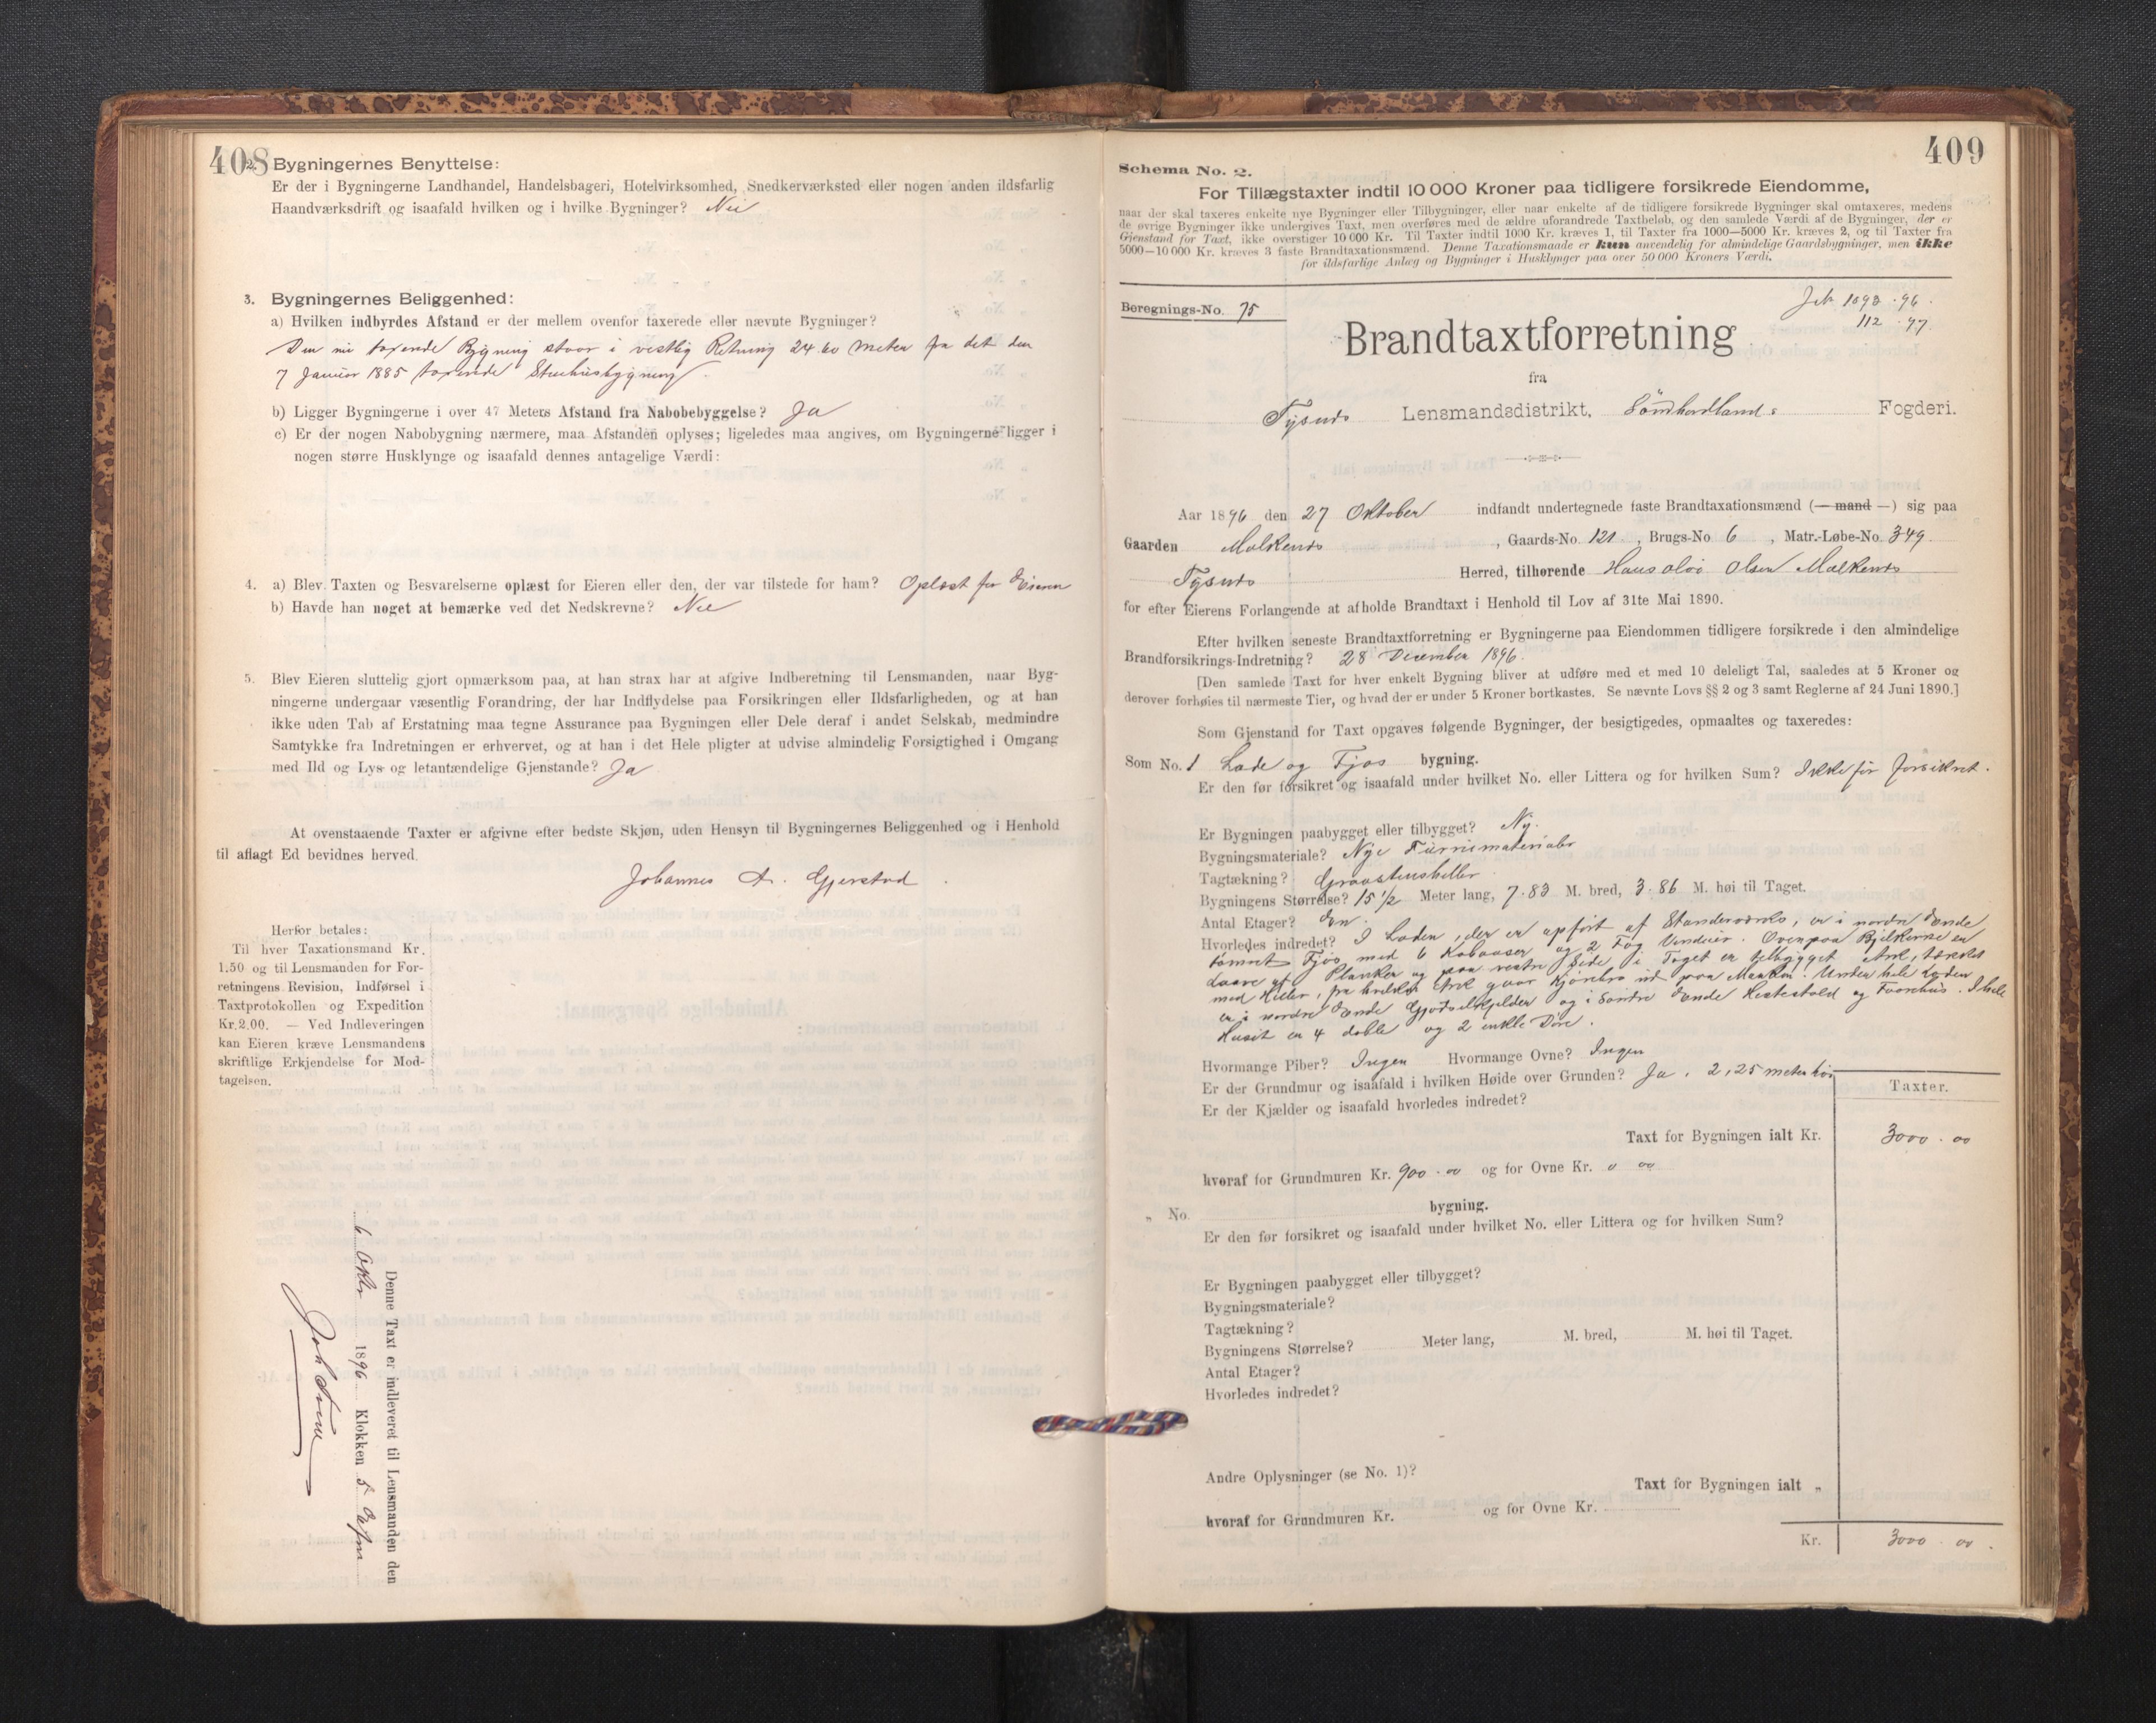 408
2. Bygningernes Benyttelse:
Er der i Bygningerne Landhandel, Handelsbageri, Hotelvirksomhed, Snedkerværksted eller nogen anden ildsfarlig
Haandværksdrift og isaafald hvilken og i hvilke Bygninger? Nei
3. Bygningernes Beliggenhed:
a) Hvilken indbyrdes Afstand er der mellem ovenfor taxerede eller nævnte Bygninger?
Den nu taxerede Bygning staar i vestlig Retning 24.60 Meter fra det den
7 Januar 1885 taxerede Stuehusbygning.
b) Ligger Bygningerne i over 47 Meters Afstand fra Nabobebyggelse? Ja
c) Er der nogen Nabobygning nærmere, maa Afstanden oplyses; ligeledes maa angives, om Bygningerne ligger i
nogen større Husklynge og isaafald dennes antagelige Værdi:
4. a) Blev Taxten og Besvarelserne oplæst for Eieren eller den, der var tilstede for ham? Oplæst for Eieren
b) Havde han noget at bemærke ved det Nedskrevne? Nei
5. Blev Eieren sluttelig gjort opmærksom paa, at han strax har at afgive Indberetning til Lensmanden, naar Byg-
ningerne undergaar væsentlig Forandring, der har Indflydelse paa Forsikringen eller Ildsfarligheden, og at han
ikke uden Tab af Erstatning maa tegne Assurance paa Bygningen eller Dele deraf i andet Selskab, medmindre
Samtykke fra Indretningen er erhvervet, og at han i det Hele pligter at udvise almindelig Forsigtighed i Omgang
med Ild og Lys og letantændelige Gjenstande? Ja
At ovenstaaende Taxter er afgivne efter bedste Skjøn, uden Hensyn til Bygningernes Beliggenhed og i Henhold
til aflagt Ed bevidnes herved.
Johannes A. Gjerstad.
Herfor betales:
Til hver Taxationsmand Kr.
1.50 og til Lensmanden for For-
retningens Revision, Indførsel i
Taxtprotokollen og Expedition
Kr. 2.00. — Ved Indleveringen
kan Eieren kræve Lensmandens
skriftlige Erkjendelse for Mod-
tagelsen.
Denne Taxt er indleveret til Lensmanden den
6 Oktr 1896 Klokken 5
409
Schema No. 2.
For Tillægstaxter indtil 10 000 Kroner paa tidligere forsikrede Eiendomme,
naar der skal taxeres enkelte nye Bygninger eller Tilbygninger, eller naar enkelte af de tidligere forsikrede Bygninger skal omtaxeres, medens
de øvrige Bygninger ikke undergives Taxt, men overføres med de ældre uforandrede Taxtbeløb, og den samlede Værdi af de Bygninger, der er
Gjenstand for Taxt, ikke overstiger 10 000 Kr. Til Taxter indtil 1000 Kr. kræves 1, til Taxter fra 1000—5000 Kr. kræves 2, og til Taxter fra
5000—10 000 Kr. kræves 3 faste Brandtaxationsmænd. Denne Taxationsmaade er kun anvendelig for almindelige Gaardsbygninger, men ikke
for ildsfarlige Anlæg og Bygninger i Husklynger paa over 50 000 Kroners Værdi.
Beregnings-No. 75
1898 . 96.
112 . 97.
Brandtaxtforretning
fra
Tysnes Lensmandsdistrikt, Søndhordlands Fogderi.
Aar 1896 den 27 Oktober indfandt undertegnede faste Brandtaxationsmænd (— mand —) sig paa
Gaarden Malkenes, Gaards-No. 121, Brugs-No 6, Matr.-Løbe-No. 349
Tysnes Herred, tilhørende Hans Olai Olsen Malkenes
for efter Eierens Forlangende at afholde Brandtaxt i Henhold til Lov af 31te Mai 1890.
Efter hvilken seneste Brandtaxtforretning er Bygningerne paa Eiendommen tidligere forsikrede i den almindelige
Brandforsikrings-Indretning? 28 December 1896.
[Den samlede Taxt for hver enkelt Bygning bliver at udføre med et med 10 deleligt Tal, saaledes at 5 Kroner og
derover forhøies til nærmeste Tier, og hvad der er under 5 Kroner bortkastes. Se nævnte Lovs §§ 2 og 3 samt Reglerne af 24 Juni 1890.]
Som Gjenstand for Taxt opgaves følgende Bygninger, der besigtigedes, opmaaltes og taxeredes:
Som No. 1 Lade og Fjøs bygning.
Er den før forsikret og isaafald under hvilket No. eller Littera og for hvilken Sum? Ikke før forsikret.
Er Bygningen paabygget eller tilbygget? Ny.
Bygningsmateriale? Nye Furumaterialer
Tagtækning? Graastensheller.
Bygningens Størrelse? 15 1/2 Meter lang, 7.83 M. bred, 3.86 M. høi til Taget.
Antal Etager? En.
Hvorledes indredet? I Laden, der er opført af Standerværk, er i nordre Ende
tømret Fjøs med 6 Kobaaser og 2 Fag Vinduer. Ovenpaa Bjelkerne en
Laave af Planker og paa vestre Side i Taget er tilbygget Ark, tækket
med Heller, fra hvilken Ark gaar Kjørebro ud paa Marken. Under hele Laden
er i nordre Ende Gjødselkjelder og i Søndre Ende Hestestald og Faarehus. I hele
Huset er 4 doble og 2 enkle Døre.
Hvormange Piber? Ingen Hvormange Ovne? Ingen
Er der Grundmur og isaafald i hvilken Høide over Grunden? Ja, 2,25 meter høi
Er der Kjælder og isaafald hvorledes indredet?
Taxter.
Taxt for Bygningen ialt Kr. 3000.00
hvoraf for Grundmuren Kr. 900.00 og for Ovne Kr. 0 00
„ No. bygning.
Er den før forsikret og isaafald under hvilket No. eller Littera og for hvilken Sum?
Er Bygningen paabygget eller tilbygget?
Bygningsmateriale?
Tagtækning?
Bygningens Størrelse? Meter lang, M. bred, M. høi til Taget.
Antal Etager?
Hvorledes indredet?
Andre Oplysninger (se No. 1)?
Taxt for Bygningen ialt „
hvoraf for Grundmuren Kr. og for Ovne Kr.
Kr. 3000.00.